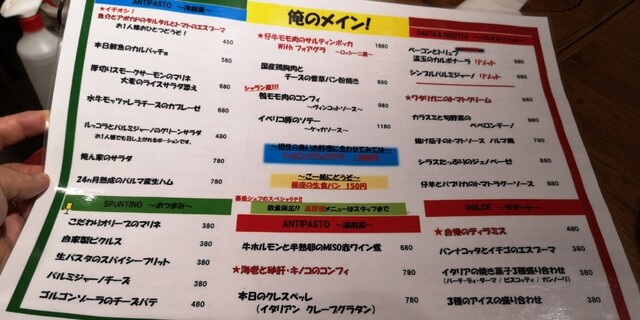 ANTIPASTO ～冷前菜～
★イチオシ！
魚介とアボカドのタルタルとトマトのエスプーマ
お1人様ひとつどうぞ！ 450
本日鮮魚のカルパッチョ 580
厚切りスモークサーモンのマリネ
大麦のライスサラダ添え 680
水牛モッツァレラチーズのカプレーゼ 680
ルッコラとパルミジャーノのグリーンサラダ 480
お1人様でも召し上がれるポーションです。
俺ん家のサラダ 780
24ヵ月熟成のパルマ産生ハム 780
SPUNTINO ～おつまみ～
こだわりオリーブのマリネ 380
自家製ピクルス 380
生パスタのスパイシーフリット 380
パルミジャーノチーズ 380
ゴルゴンゾーラのチーズパテ 480
俺のメイン！
★仔牛モモ肉のサルティンボッカ 1680
With フォアグラ ～ロッシーニ風～
国産鶏胸肉と
チーズの香草パン粉焼き
シャラン産!!!
鴨モモ肉のコンフィ 980
～ヴィンコットソース～
イベリコ豚のソテー 1180
～ケッカソース～
～相性の良いお料理に合わせてみては～
～ご一緒にどうぞ～
銀座の生食パン 150円
数量限定!! メニューはスタッフまで
ANTIPASTO ～温前菜～
牛ホルモンと半熟卵のMISO赤ワイン煮 680
★海老と砂肝・キノコのコンフィ 780
本日のクレスペッレ 780
(イタリアン クレープグラタン)
PASTA & RISOTTO
ベーコンとトリュフ
温玉のカルボナーラ リゾット 880
シンプルパルミジャーノ リゾット 880
★ワタリガニのトマトクリーム 980
カラスミと旬野菜の
ペペロンチーノ 880
揚げ茄子のトマトソース ノルマ風 780
シラスたっぷりのジェノベーゼ 880
仔羊とパプリカのトマトラグーソース 880
DOLCE ～デザート～
★自慢のティラミス 480
パンナコッタとイチゴのエスプーマ 380
イタリアの焼き菓子3種盛り合わせ 380
(バーチ・ディ・ダーマ / ビスコッティ / カンノーリ)
3種のアイスの盛り合わせ 380